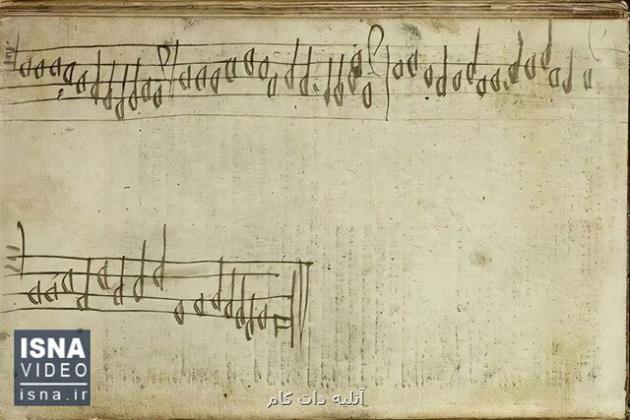 ISNA
VIDEO
isna.ir
isna.ir
آتلیه دات کام